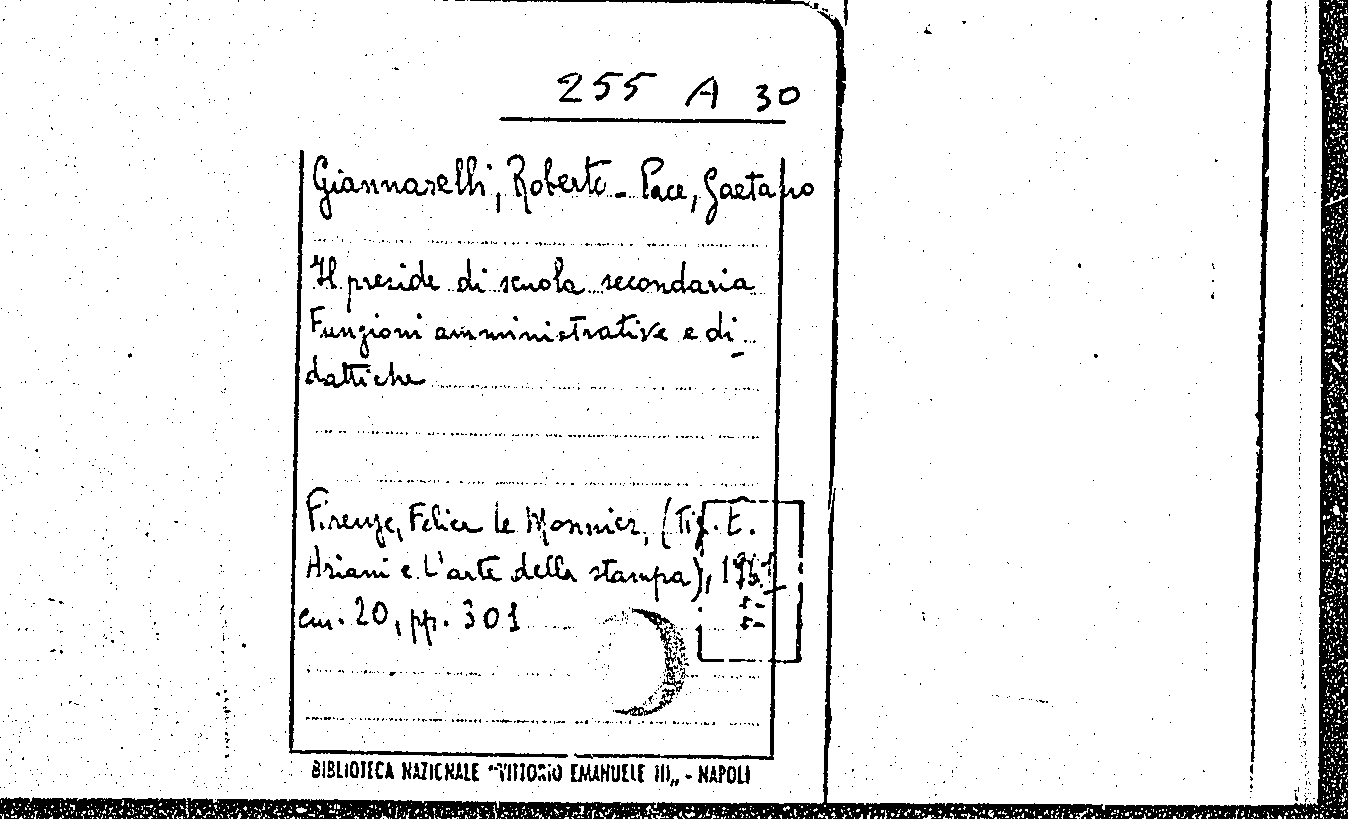 255 A 30
Giannarelli, Roberto - Pace, Gaetano
Il preside di scuola secondaria
Funzioni amministrative e di-
dattiche
Firenze, Felice Le Monnier, (Tip. E.
Ariani e L'arte della stampa),
cm. 20, pp. 301
BIBLIOTECA NAZIONALE "VITTORIO EMANUELE III„ - NAPOLI